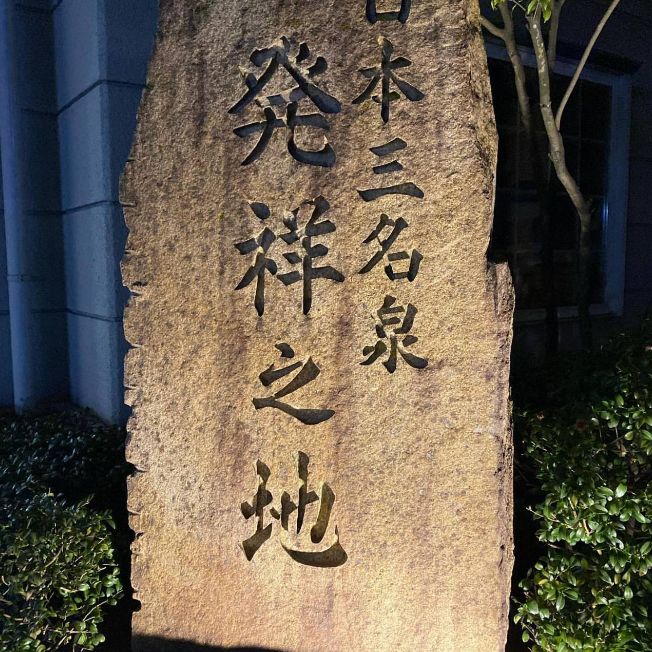 日本三名泉
発祥之地